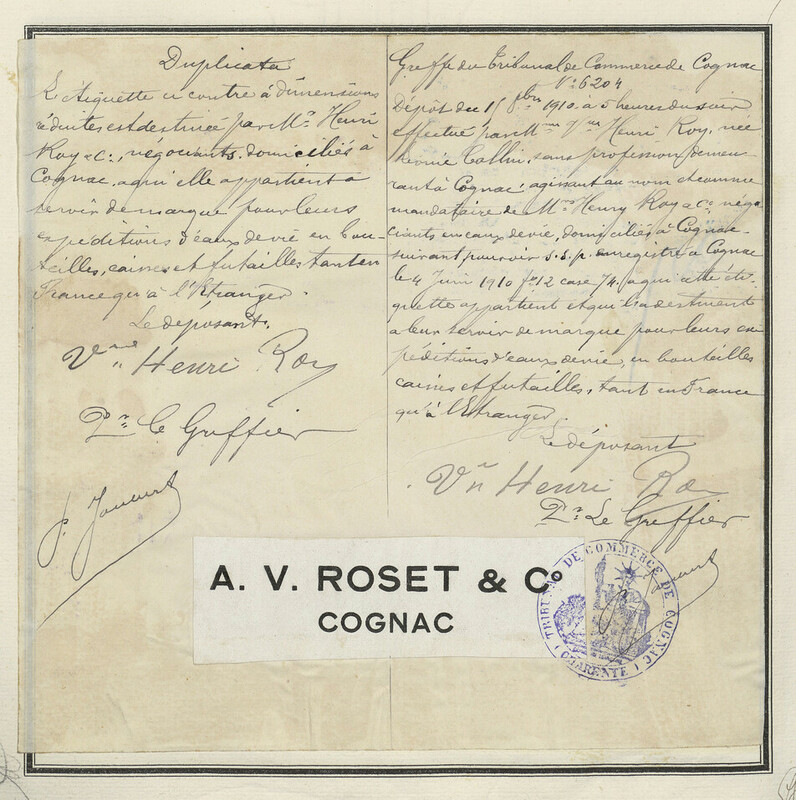 Duplicata
L'étiquette ci contre à dimensions
réduites, est destinée par Mrs Henri
Roy & Co, négociants, domiciliés à
Cognac, à qui elle appartient à
servir de marque pour leurs
expéditions d'eaux de vie en bou-
teilles, caisses et futailles tant en
France qu'à l'Etranger.
Le déposant,
Vve Henri Roy
Pr Le Greffier
Greffe du Tribunal de Commerce de Cognac
No 6204
Dépôt du 15 8bre 1910 à 5 heures du soir
effectué par Mme Vve Henri Roy, née
sans profession, demeu-
rant à Cognac, agissant au nom et comme
mandataire de Mrs Henry Roy & Co, négo-
ciants en eaux de vie, domiciliés à Cognac
suivant pouvoir s. s. p. enregistré à Cognac
le 4 Juin 1910 fo 12 case 74. à qui cette éti-
quette appartient et qui la destinent
à leur servir de marque pour leurs ex-
péditions d'eaux de vie, en bouteilles
caisses et futailles, tant en France
qu'à l'Etranger.
Le déposant
Vve Henri Roy
Pr Le Greffier
A. V. ROSET & Co
COGNAC
TRIBUNAL DE COMMERCE DE COGNAC
(CHARENTE)